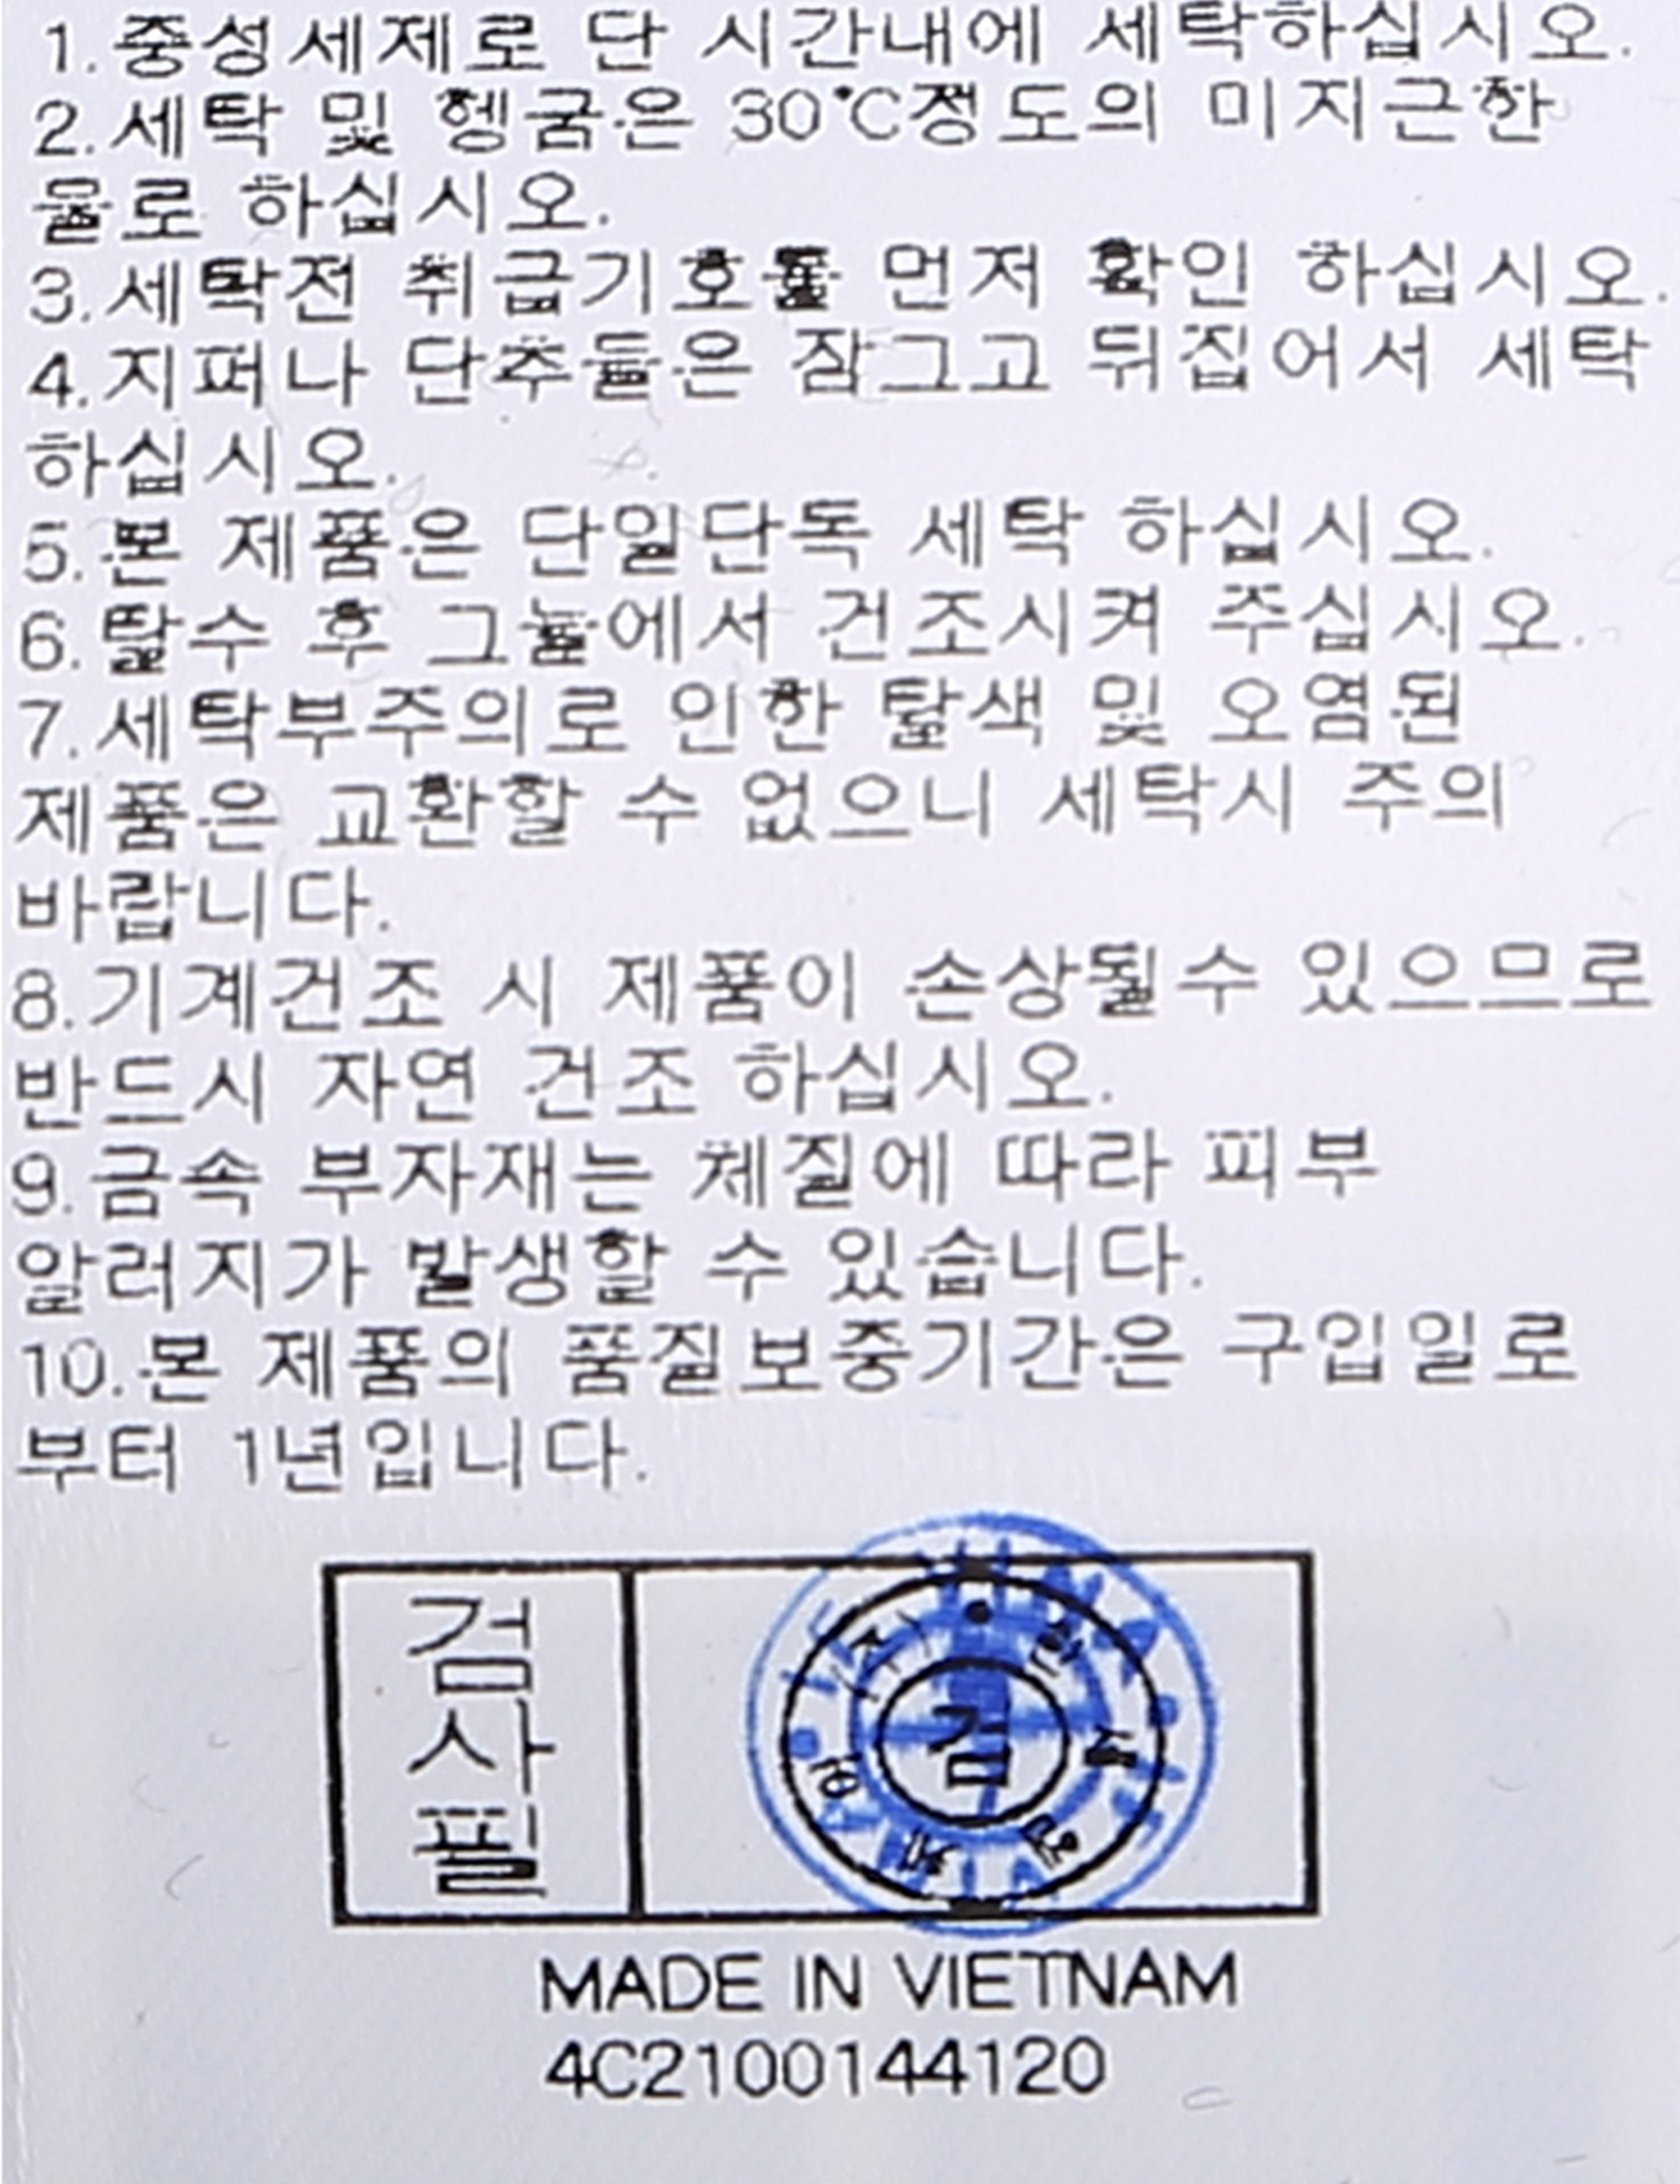 1.중성세제로 단 시간내에 세탁하십시오.
2.세탁 및 헹굼은 30°C정도의 미지근한
물로 하십시오.
3.세탁전 취급기호를 먼저 확인 하십시오.
4.지퍼나 단추들은 잠그고 뒤집어서 세탁
하십시오.
5.본 제품은 단일단독 세탁 하십시오.
6.탈수 후 그늘에서 건조시켜 주십시오.
7.세탁부주의로 인한 탈색 및 오염된
제품은 교환할 수 없으니 세탁시 주의
바랍니다.
8.기계건조 시 제품이 손상될수 있으므로
반드시 자연 건조 하십시오.
9.금속 부자재는 체질에 따라 피부
알러지가 발생할 수 있습니다.
10.본 제품의 품질보증기간은 구입일로
부터 1년입니다.
검사필
검
MADE IN VIETNAM
4C2100144120